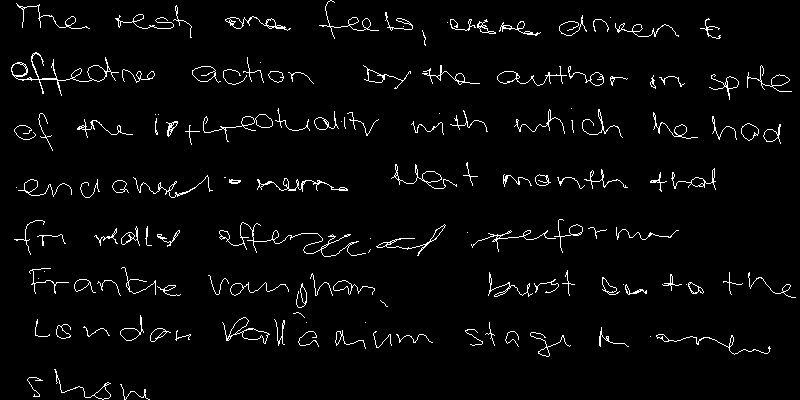 The rest, one feels, were driven to
effective action by the author in spite
of the ineffectuality with which he had
endowed them. Next month that
friendly performer
Frankie Vaughan, burst on to the
London Palladium stage in a new
show